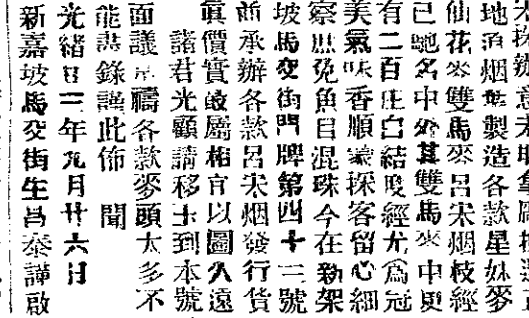 地道烟葉製造各款星妹麥
仙花麥雙馬麥呂宋烟枝經
已馳名中外其雙馬麥中更
有二百庄白結經尤為冠
美氣味香順蒙採客留心細
察庶免魚目混珠今在新架
坡馬交街門牌第四十二號
前承辦各款呂宋烟發行貨
真價實的屬相宜以圖久遠
諸君光顧請移玉到本號
面議是禱各款麥頭太多不
能盡錄謹此佈　聞
光緒廿二年九月廿六日
新嘉坡馬交街生昌泰謹啟